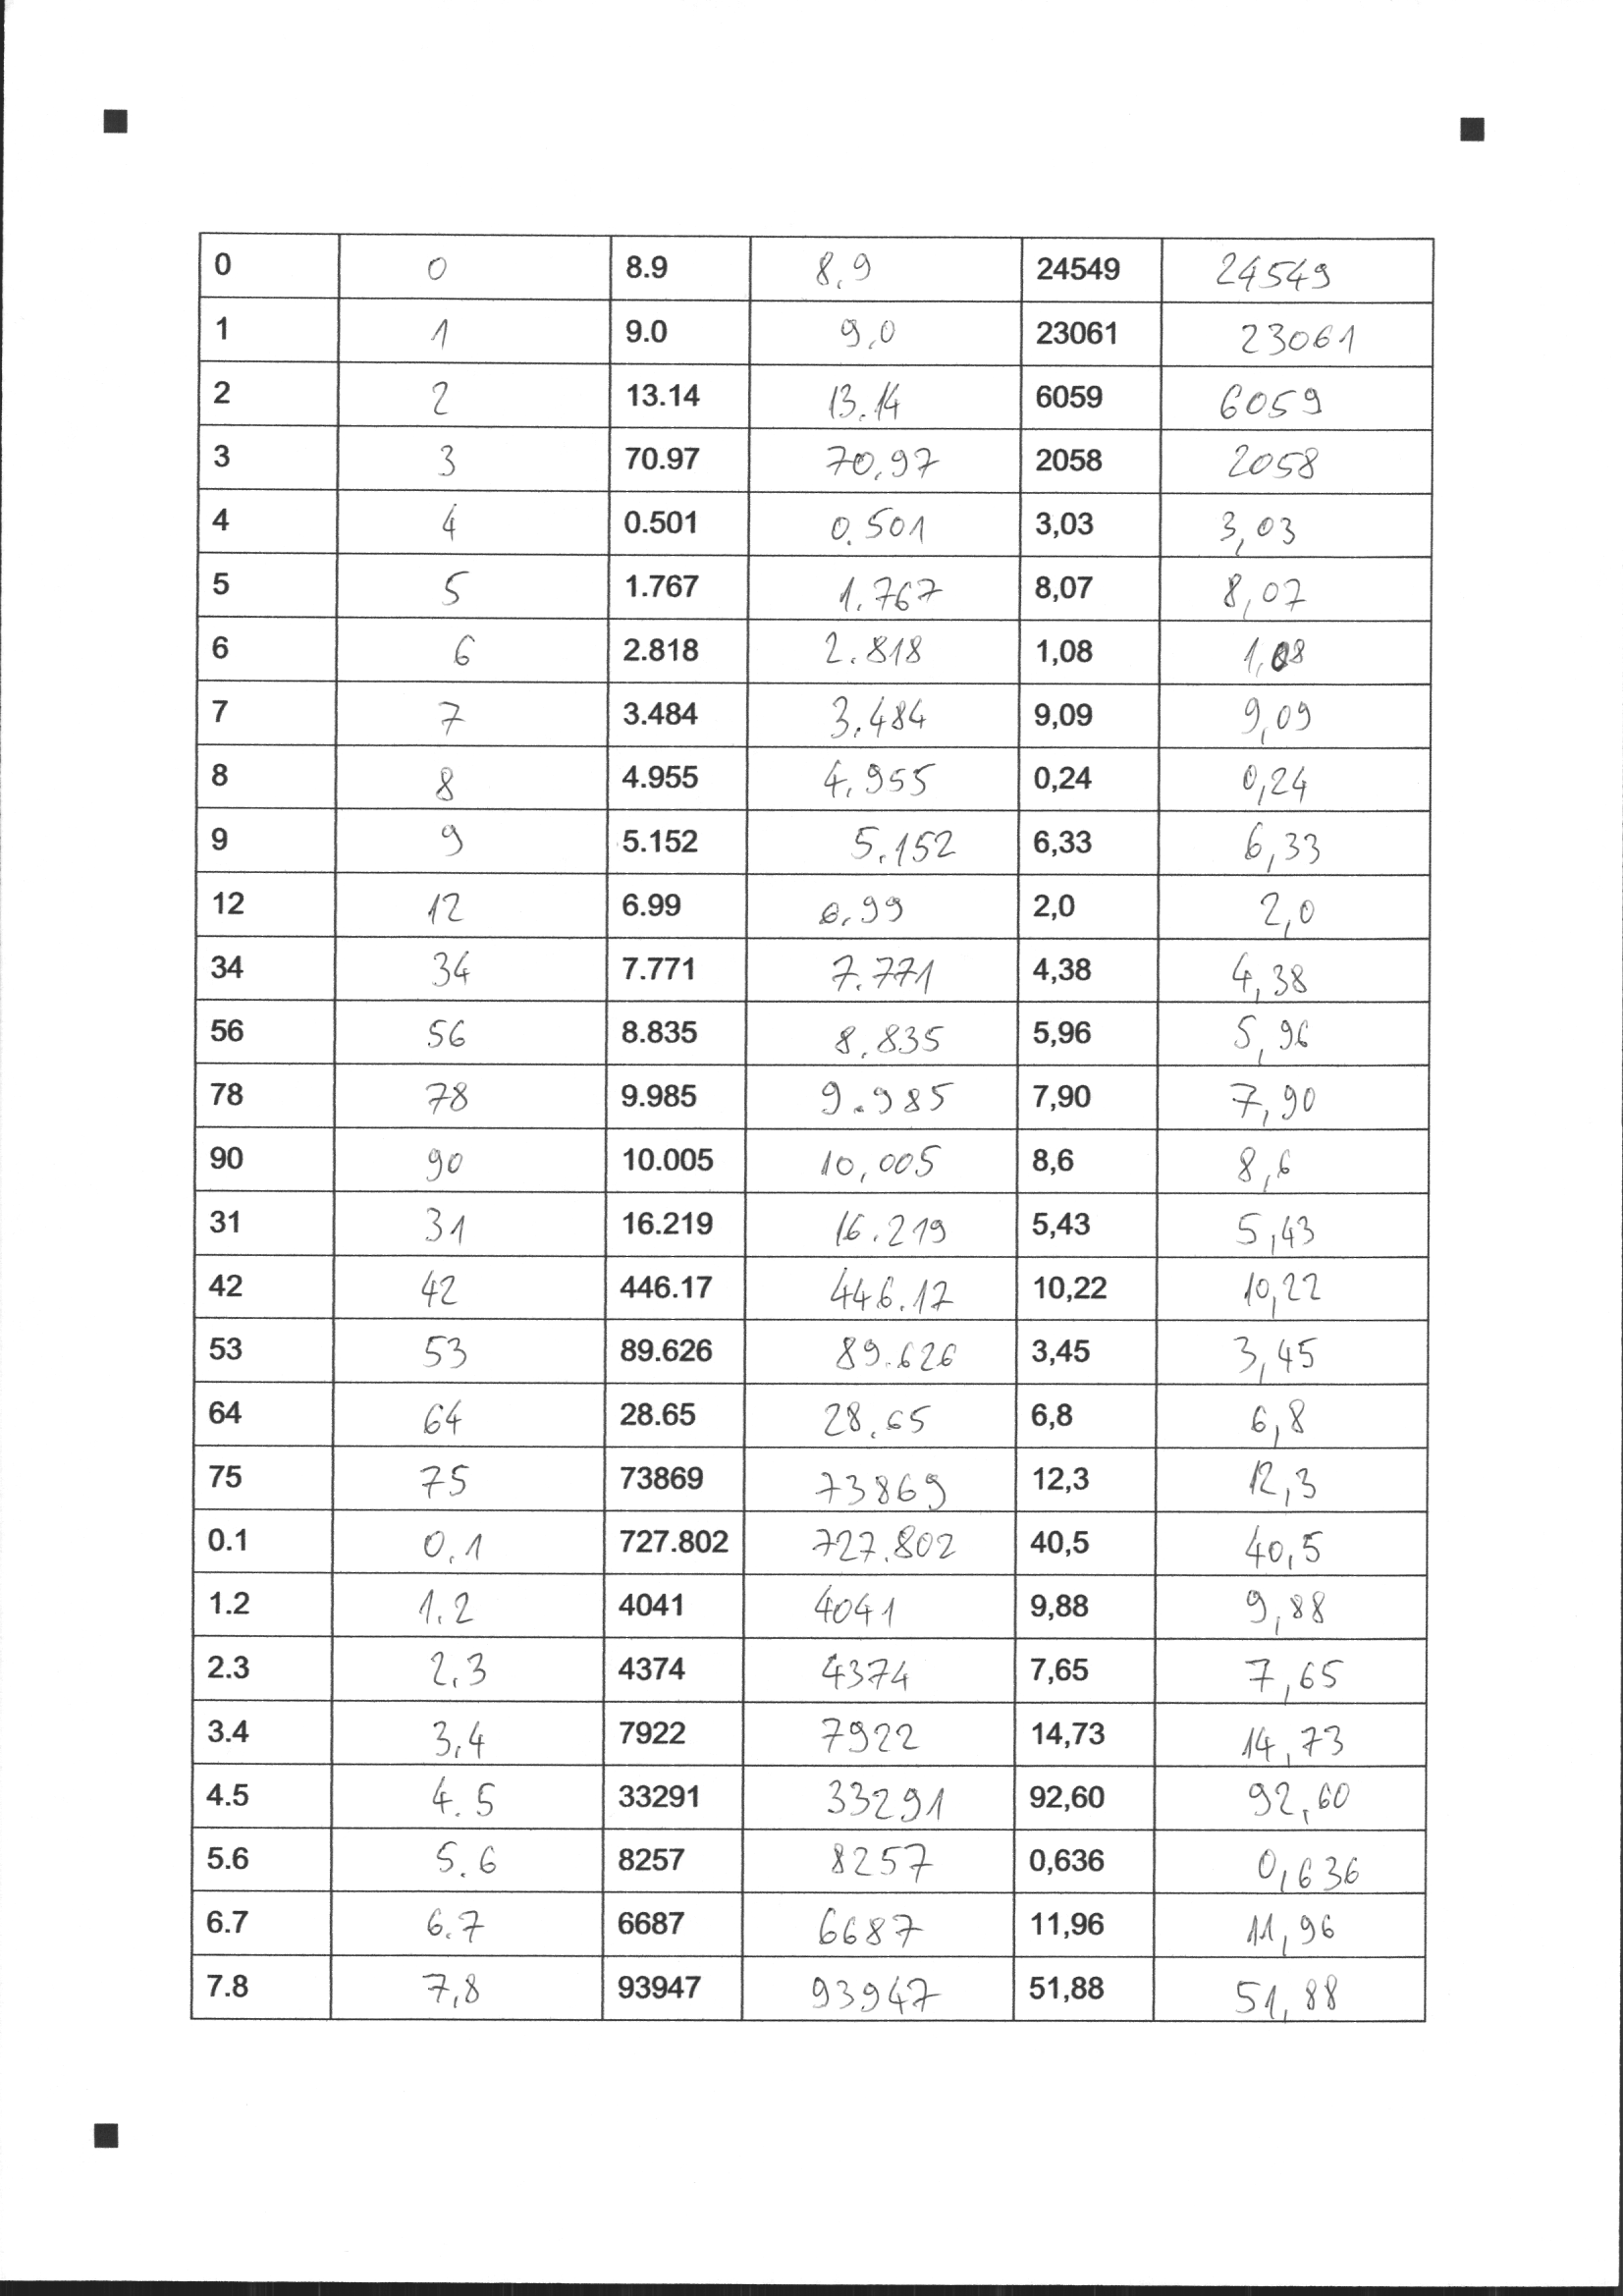 0 0 8.9 8.9 24549 24549
1 1 9.0 9.0 23061 23061
2 2 13.14 13.14 6059 6059
3 3 70.97 70.97 2058 2058
4 4 0.501 0.501 3,03 3,03
5 5 1.767 1.767 8,07 8,07
6 6 2.818 2.818 1,08 1,08
7 7 3.484 3.484 9,09 9,09
8 8 4.955 4.955 0,24 0,24
9 9 5.152 5.152 6,33 6,33
12 12 6.99 6.99 2,0 2,0
34 34 7.771 7.771 4,38 4,38
56 56 8.835 8.835 5,96 5,96
78 78 9.985 9.985 7,90 7,90
90 90 10.005 10,005 8,6 8,6
31 31 16.219 16.219 5,43 5,43
42 42 446.17 446.17 10,22 10,22
53 53 89.626 89.626 3,45 3,45
64 64 28.65 28.65 6,8 6,8
75 75 73869 73869 12,3 12,3
0.1 0.1 727.802 727.802 40,5 40,5
1.2 1.2 4041 4041 9,88 9,88
2.3 2.3 4374 4374 7,65 7,65
3.4 3.4 7922 7922 14,73 14,73
4.5 4.5 33291 33291 92,60 92,60
5.6 5.6 8257 8257 0,636 0,636
6.7 6.7 6687 6687 11,96 11,96
7.8 7,8 93947 93947 51,88 51,88